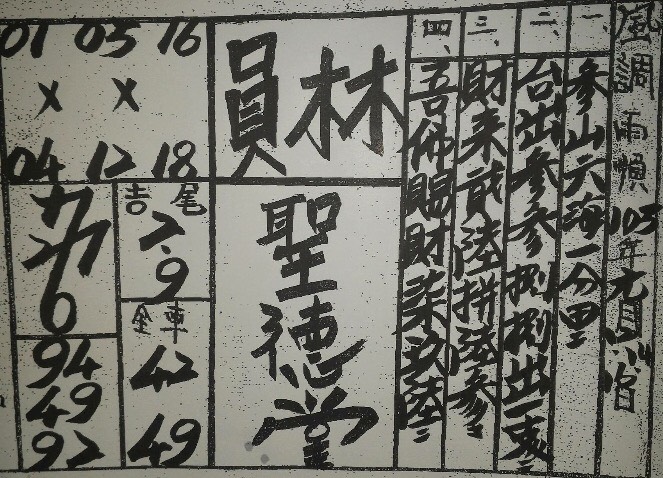 風調雨順 105年元月14日
一、參山六海一分田
二、台出參參捌捌出一支
三、財來貳陸拼
四、吾佛賜財柒玖陸
員林
聖德堂
01 05 16
× ×
04 12 18
吉尾
2.9
全車
42
49
6
94
49
92